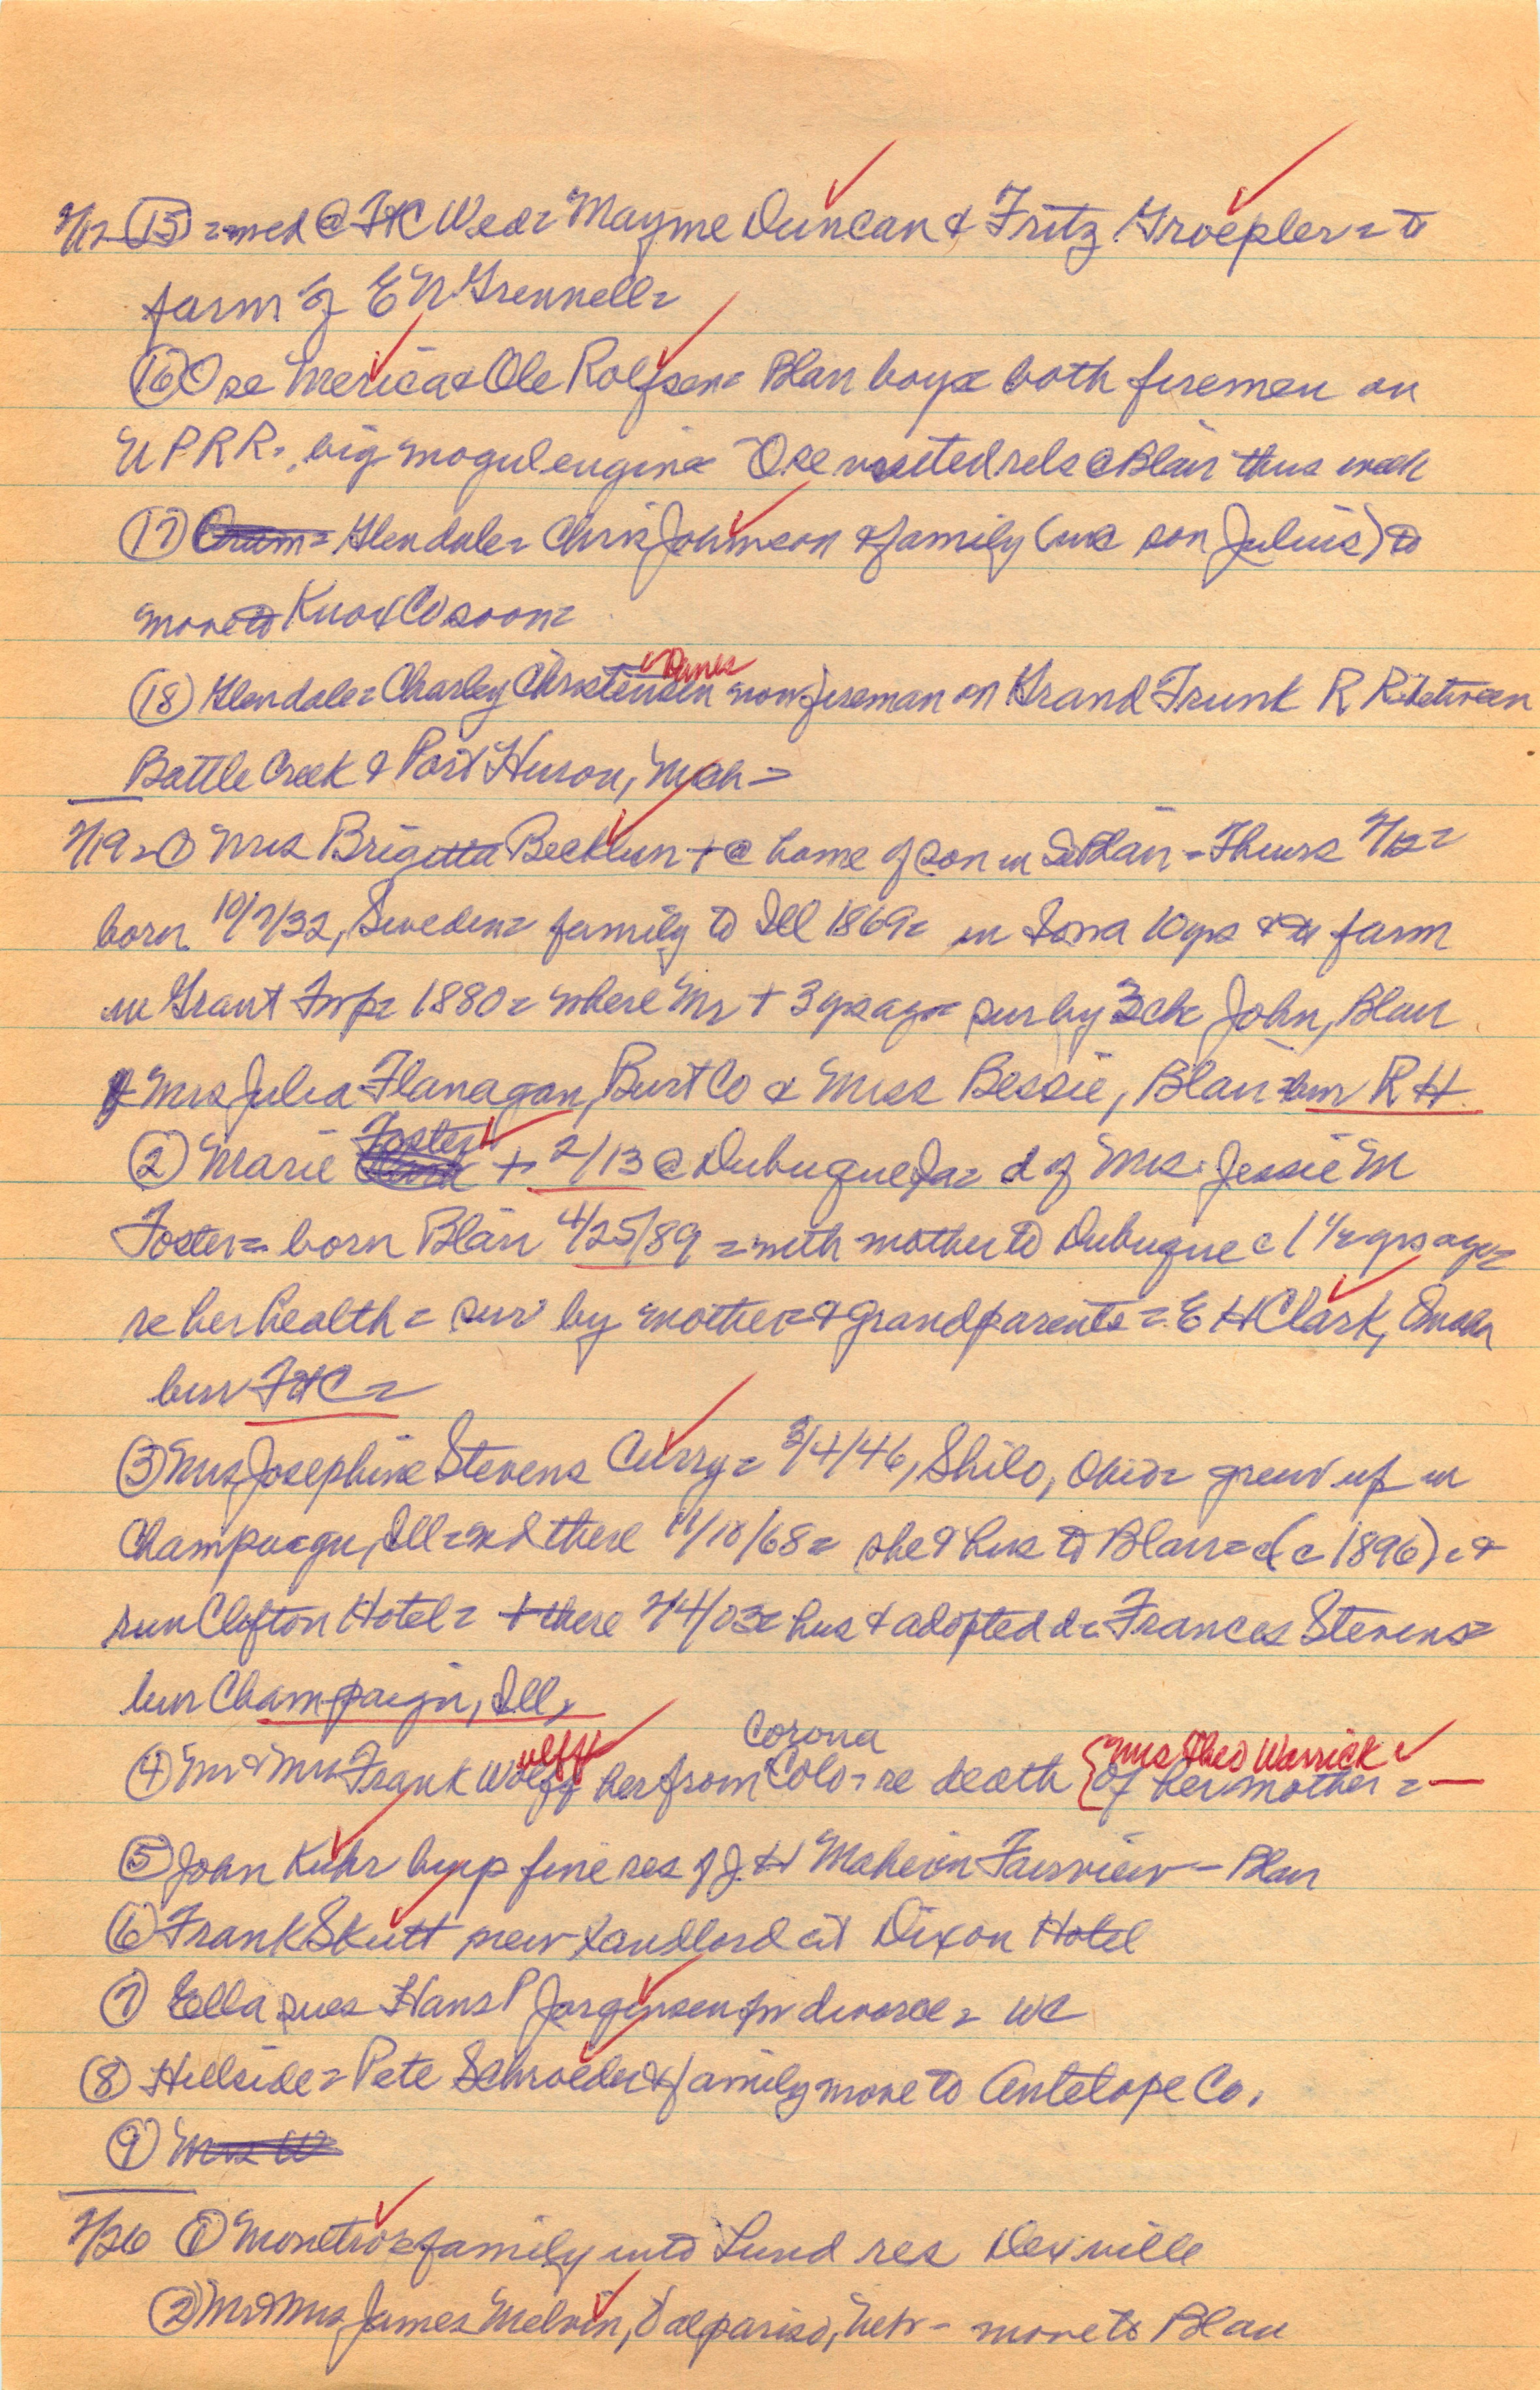 2/12 (15) = med @ Ft C Wed = Mayme Duncan & Fritz Groepler = to
farm of E N Grennell =
(16) Ose Merica & Ole Rolfsen = Blair boys = both firemen on
U P R R. big mogul engine = Ose visited rels @ Blair this week
(17) Glendale = Chris Johnson & family (inc son Julius) to
move to Knox Co soon =
Danes
(18) Glendale = Charley Christensen now fireman on Grand Trunk R R between
Battle Creek & Port Huron, Mich =
2/19 = (1) Mrs Brigitta Becklun + @ home of son in Blair - Thurs 2/12 =
born 10/7/32, Sweden = family to Ill 1869 = in Iowa 10 yrs & to farm
in Grant Twp = 1880 = where Mr + 3 yrs ago = sur by 3 ch = John, Blair
Mrs Julia Flanagan, Burt Co & Miss Bessie, Blair = bur R H
Foster
(2) Marie + 2/13 @ Dubuque Ia = d of Mrs Jessie M
Foster = born Blair 4/25/89 = with mother to Dubuque c 1 1/2 yrs ago =
re her health = sur by mother & grandparents = E H Clark, Omaha
bur Ft C =
(3) Mrs Josephine Stevens Curry = 3/4/46, Shilo, Ohio = grew up in
Champaign, Ill = md there 11/18/68 = she & hus to Blair = (c 1896) &
run Clifton Hotel = + there 2/14/03 = hus & adopted d = Frances Stevens =
bur Champaign, Ill,
ulff Corona Mrs Theo Warrick
(4) Mr & Mrs Frank Wolff her from Colo = re death {of her mother = —
(5) John Kuhr buys fine res of J H Maher in Fairview - Blair
(6) Frank Skutt new landlord at Dixon Hotel
(7) Ella sues Hans P Jorgensen for divorce = WC
(8) Hillside = Pete Schroeder & family move to Antelope Co.
(9) Mrs W
2/26 (1) Monetroe family into Lund res Dexville
(2) Mr & Mrs James Melvin, Valpariso, Neb - move to Blair